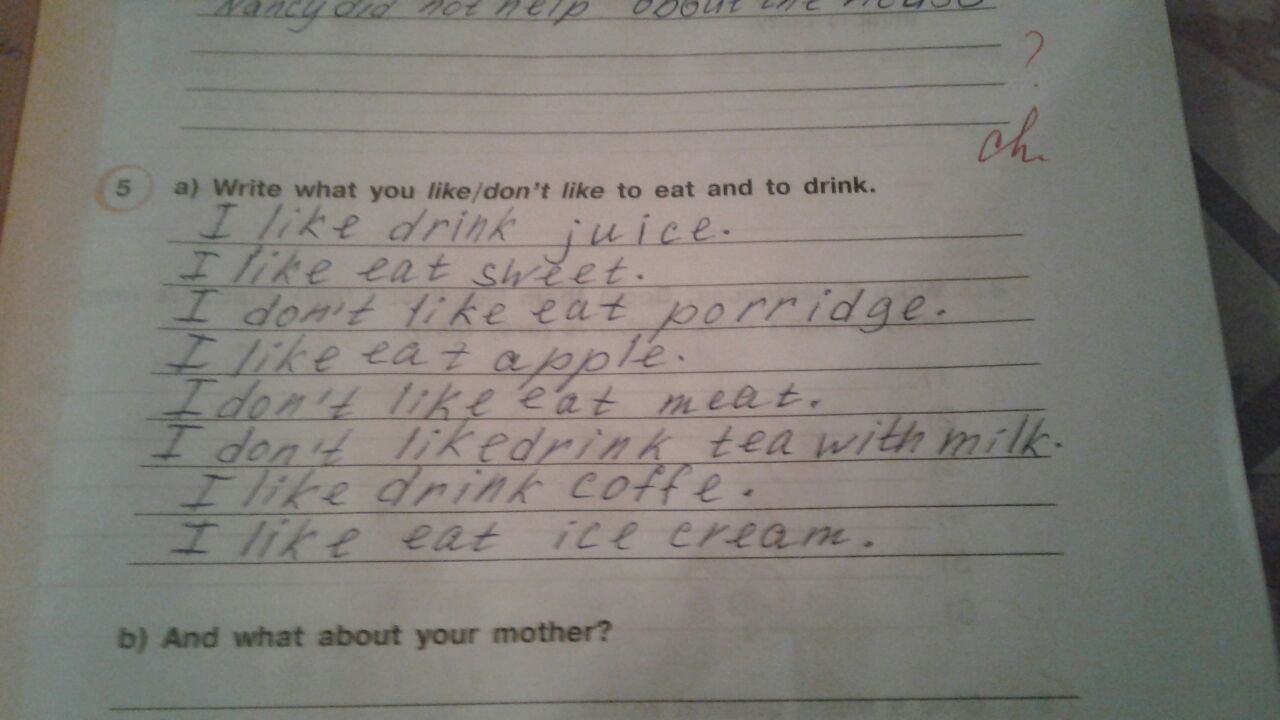 Nancy did not help about the house
?
ch.
5 a) Write what you like/don't like to eat and to drink.
I like drink juice.
I like eat sweet.
I don't like eat porridge.
I like eat apple.
I don't like eat meat.
I don't like drink tea with milk.
I like drink coffe.
I like eat ice cream.
b) And what about your mother?